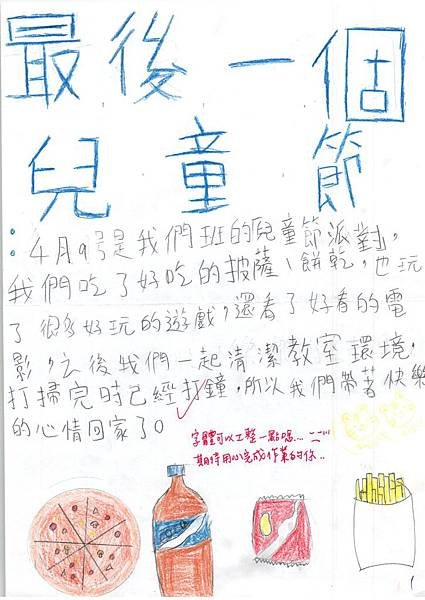 最後一個
兒童節
：4月9号是我們班的兒童節派對，
我們吃了好吃的披薩、餅乾，也玩
了很多好玩的遊戲，還看了好看的電
影，之後我們一起清潔教室環境，
打掃完時已經打鐘，所以我們帶著快樂
的心情回家了。
字體可以工整一點嗎...
期待用心完成作業的你..